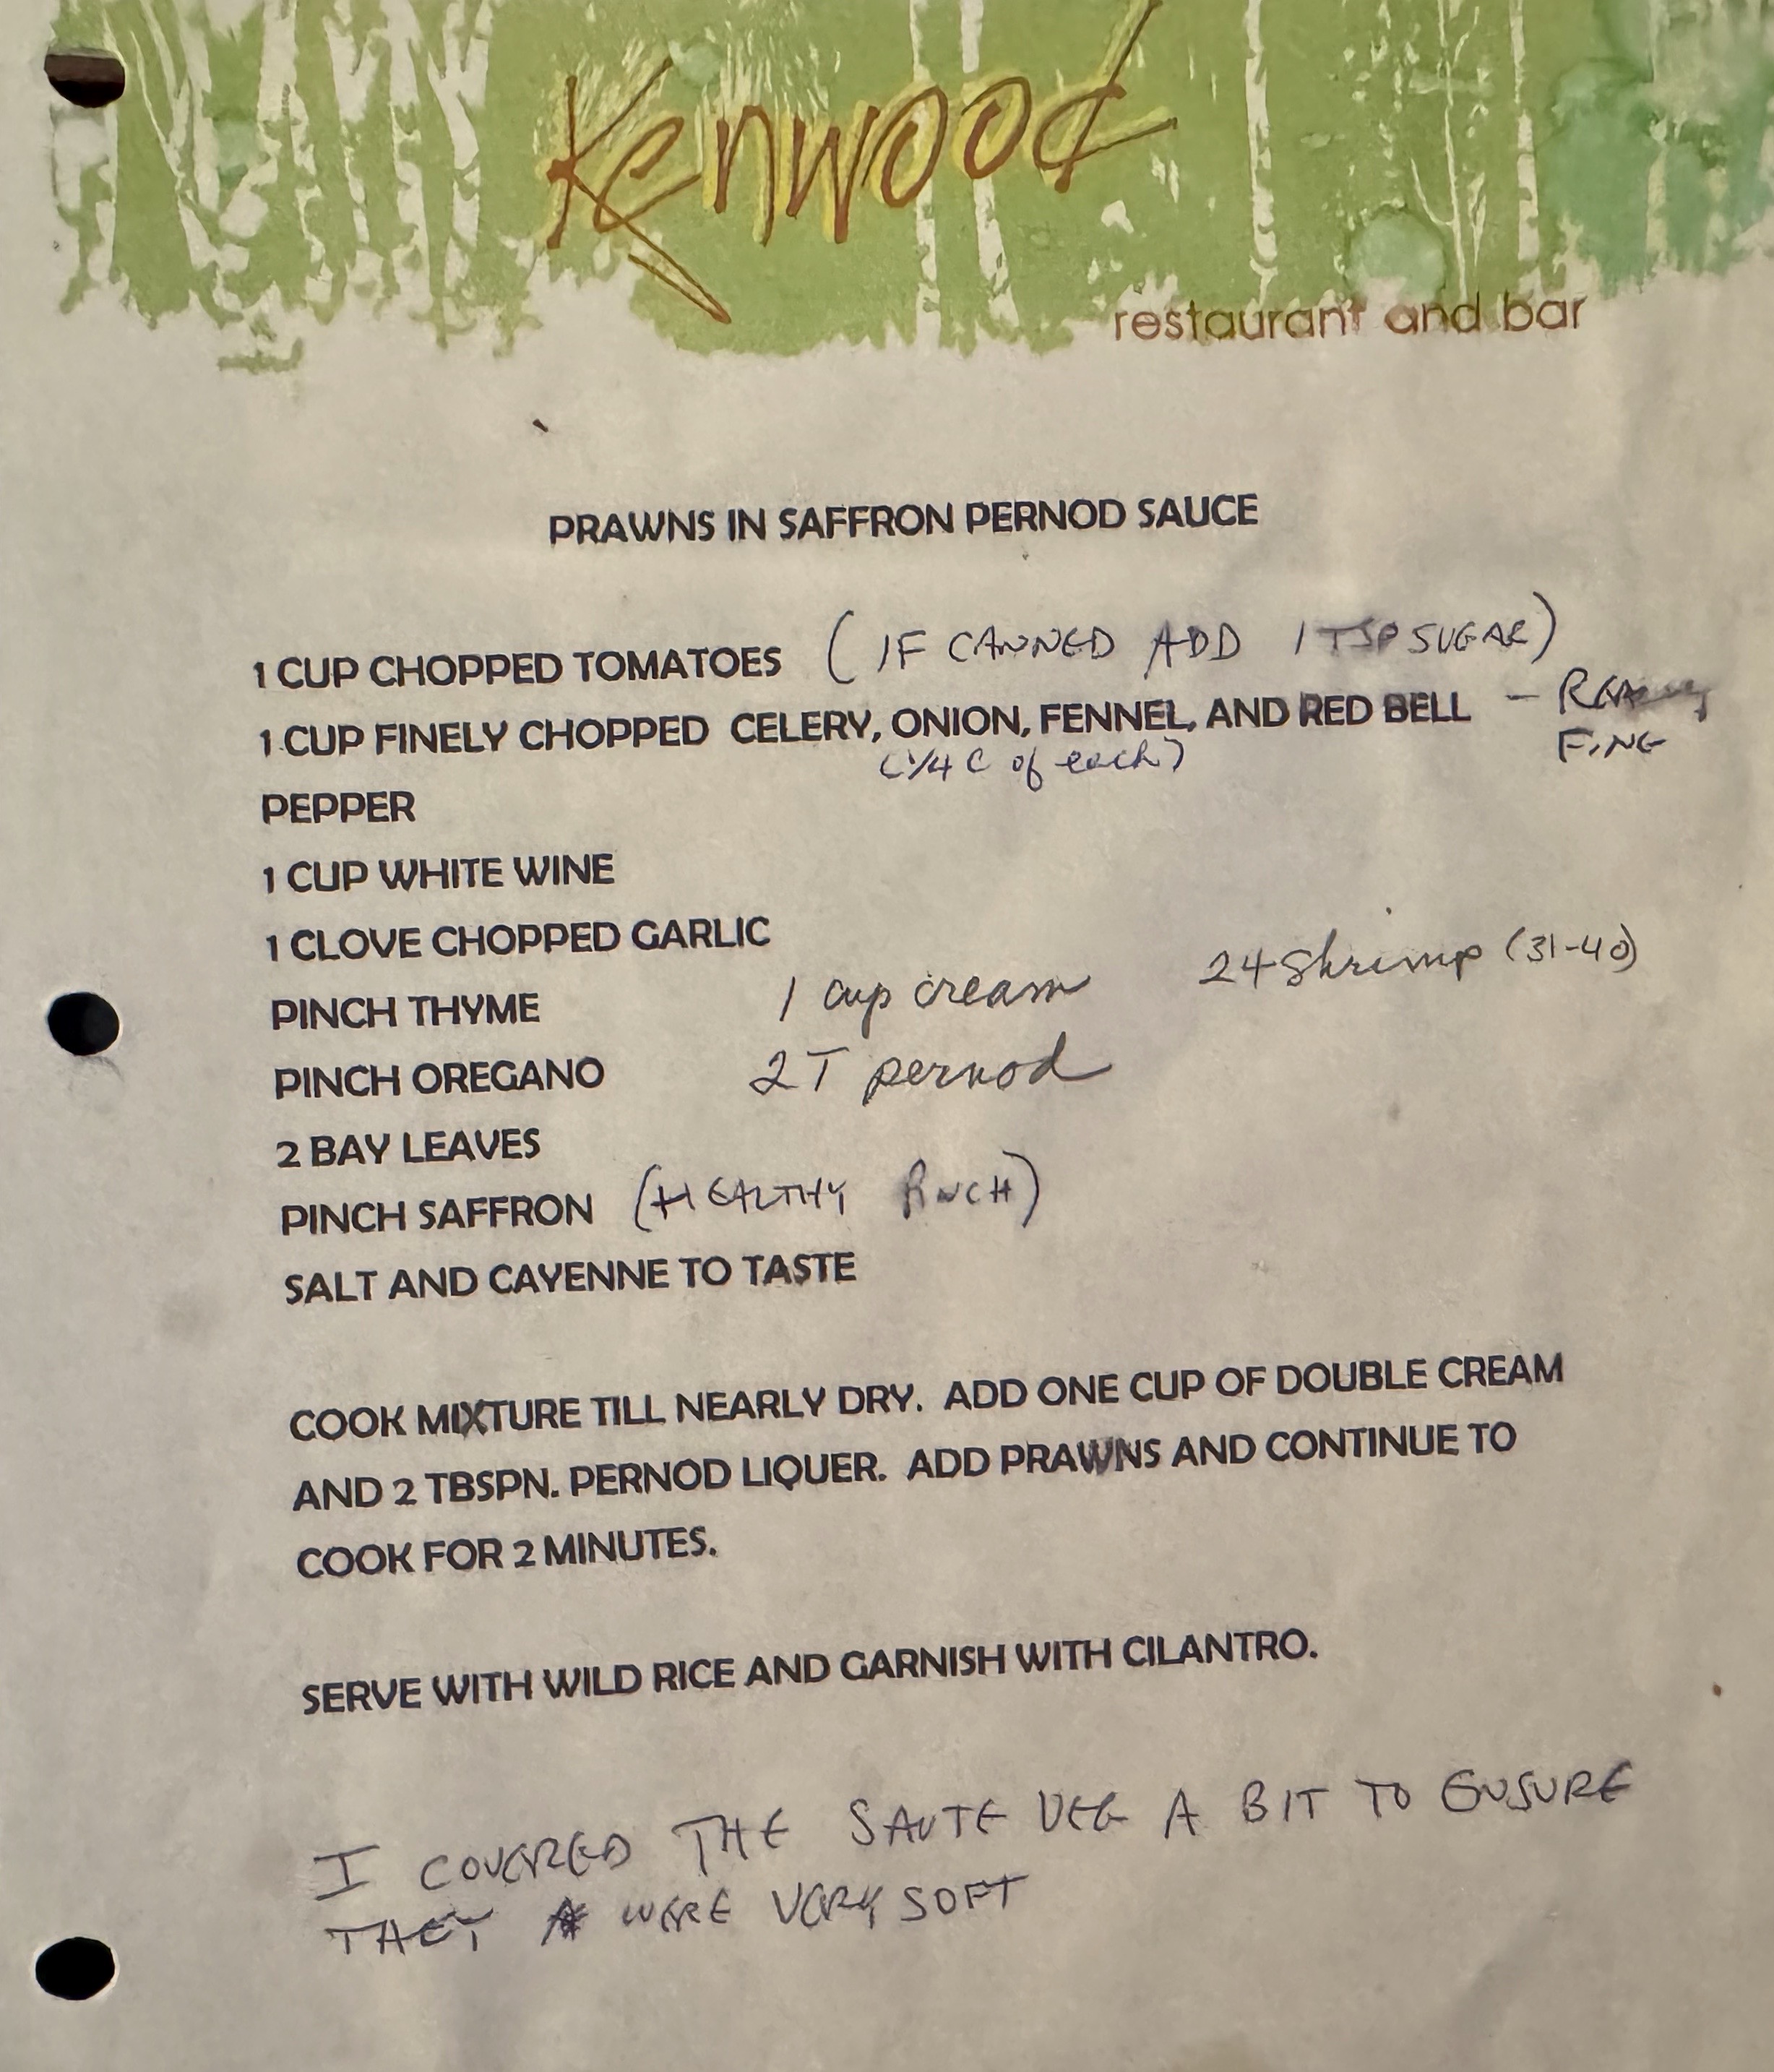 Kenwood
restaurant and bar
PRAWNS IN SAFFRON PERNOD SAUCE
1 CUP CHOPPED TOMATOES (IF CANNED ADD 1 TSP SUGAR)
1 CUP FINELY CHOPPED CELERY, ONION, FENNEL, AND RED BELL – REALLY
(1/4 C of each) FINE
PEPPER
1 CUP WHITE WINE
1 CLOVE CHOPPED GARLIC
24 Shrimp (31-40)
PINCH THYME 1 cup cream
PINCH OREGANO 2 T pernod
2 BAY LEAVES
PINCH SAFFRON (HEALTHY PINCH)
SALT AND CAYENNE TO TASTE
COOK MIXTURE TILL NEARLY DRY. ADD ONE CUP OF DOUBLE CREAM
AND 2 TBSPN. PERNOD LIQUER. ADD PRAWNS AND CONTINUE TO
COOK FOR 2 MINUTES.
SERVE WITH WILD RICE AND GARNISH WITH CILANTRO.
I COVERED THE SAUTE VEG A BIT TO ENSURE
THEY WERE VERY SOFT